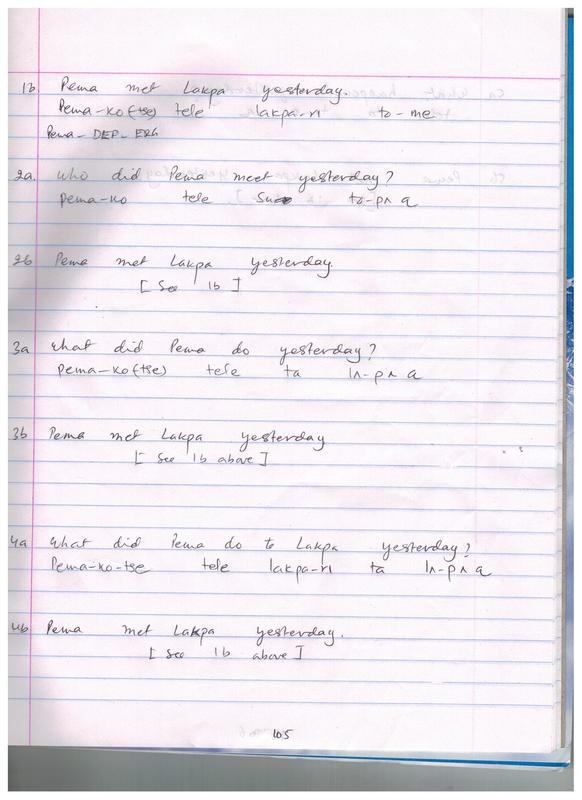 1b. Pema met Lakpa yesterday.
Pema-ko(tse) tele lakpa-ri to-me
Pema-DEP-ERG
2a. Who did Pema meet yesterday?
pema-ko tele su to-pʌ a
2b Pema met Lakpa yesterday.
[ See 1b ]
3a What did Pema do yesterday?
pema-ko(tse) tele ta lʌ-pʌ a
3b Pema met Lakpa yesterday
[ See 1b above ]
4a What did Pema do to Lakpa yesterday?
Pema-ko-tse tele lakpa-ri ta lʌ-pʌ a
4b Pema met Lakpa yesterday.
[ See 1b above ]
105